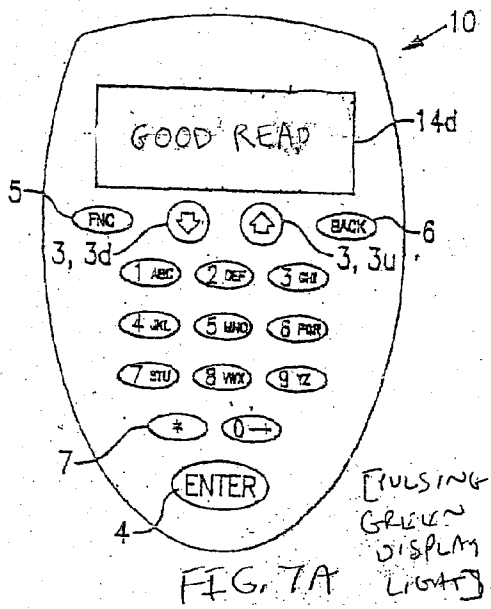 10
GOOD READ
14d
5
FNC
BACK
6
3, 3d
3, 3u
1 ABC 2 DEF 3 GHI
4 JKL 5 MNO 6 PQR
7 STU 8 VWX 9 YZ
7
* 0→
ENTER
4
[PULSING
GREEN
DISPLAY
LIGHT]
FIG. 7A